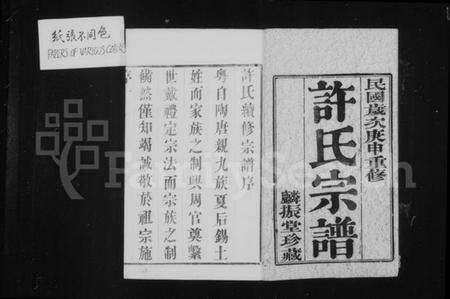 紙張不同色
PAPERS OF VARIOUS COLORS
民國歲次庚申重修
許氏宗譜
麟振堂珍藏
許氏續修宗譜序
粤自陶唐親九族夏后錫土
姓而家族之制興周官奠繫
世戴禮定宗法而宗族之制
備然僅知竭誠敬於祖宗施
FamilySearch